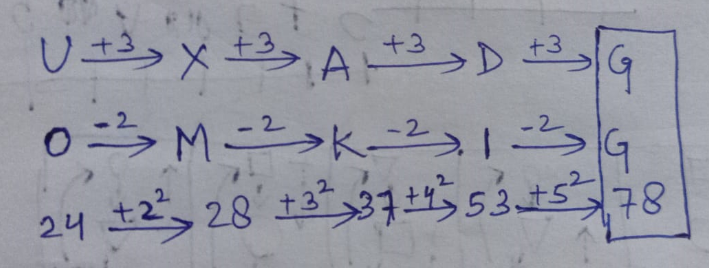 U +3 → X +3 → A +3 → D +3 → G
O -2 → M -2 → K -2 → I -2 → G
24 +2² → 28 +3² → 37 +4² → 53 +5² → 78